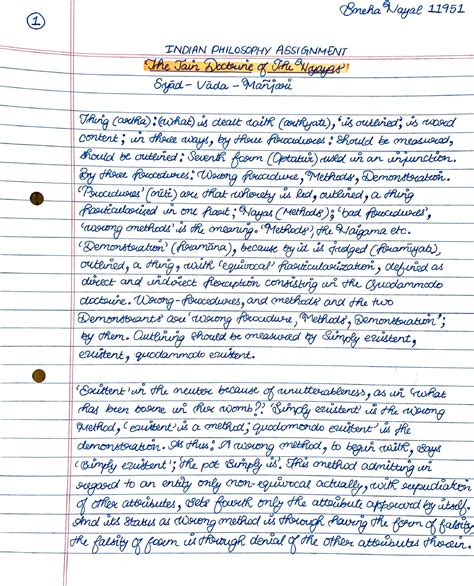 1
Sneha Nayal 11951
INDIAN PHILOSOPHY ASSIGNMENT
The Jain Doctrine of The Nayayas
Syād - Vāda - Mañjari
Thing (artha): (what) is dealt with (arthyate), 'is outlined', is word
content; in three ways, by three procedures: Should be measured,
should be outlined: Seventh form (Optative) used in an injunction.
By three procedures: Wrong Procedure, Methods, Demonstration.
'Procedures' (niti) are that whereby is led, outlined, a thing
particularised in one part; Nayas (Methods); 'bad procedures',
'wrong methods' is the meaning. 'Methods', the Naigama etc.
'Demonstration' (pramāna), because by it is judged (pramiyate),
outlined, a thing, with 'equivocal' particularization, defined as
direct and indirect perception consisting in the Quodammodo
doctrine. Wrong-Procedures, and methods and the two
Demonstrants are 'Wrong Procedure, Methods, Demonstration';
by them. Outlining should be measured by Simply existent,
existent, quodammodo existent.
'Existent' in the neuter because of unutterableness, as in 'what
has been borne in her womb?' 'Simply existent' is the wrong
Method, 'existent' is a method; quodamondo existent' is the
demonstration. As thus: A wrong method, to begin with, says
'simply existent'; the pot simply is'. This method admitting in
regard to an entity only non-equivocal actually, with repudiation
of other attributes, sets fourth only the attribute approved by itself.
And its status as wrong method is through having the form of falsity
the falsity of form is through denial of the other attributes therein.